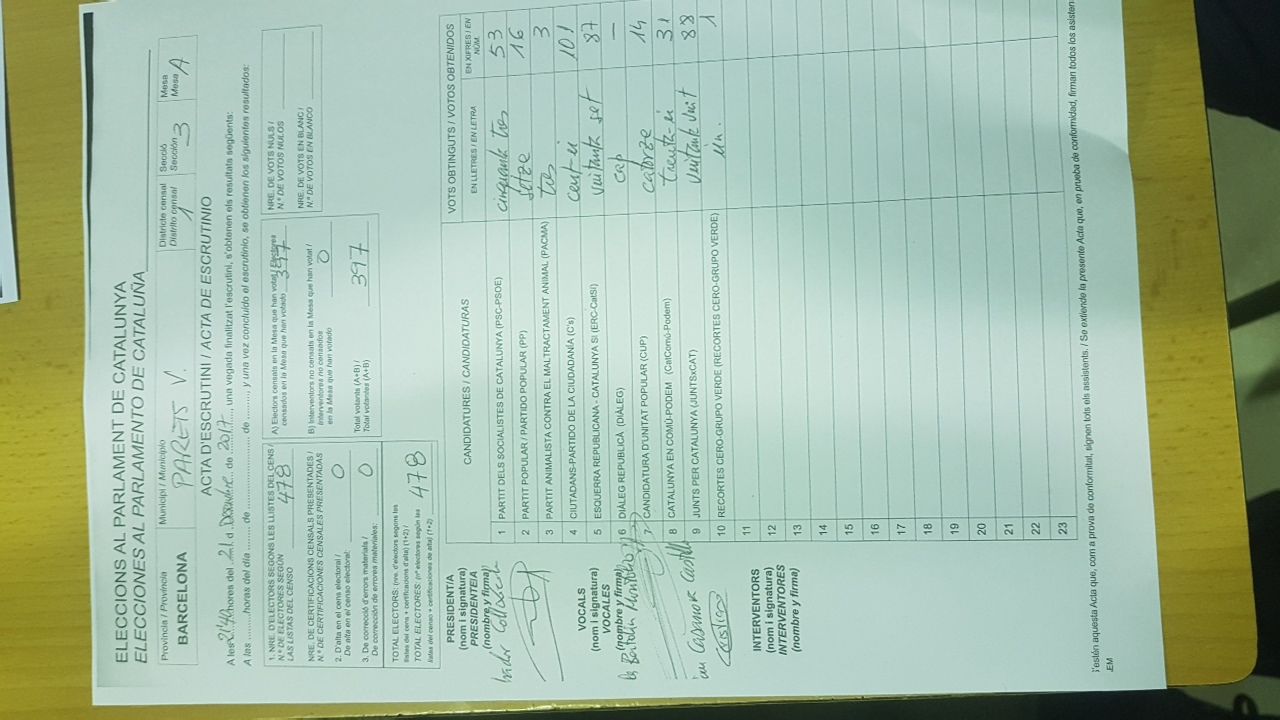 ELECCIONS AL PARLAMENT DE CATALUNYA
ELECCIONES AL PARLAMENTO DE CATALUÑA
Província / Provincia
BARCELONA
Municipi / Municipio
PARETS V.
Districte censal
Distrito censal
1
Secció
Sección
3
Mesa
Mesa
A
ACTA D'ESCRUTINI / ACTA DE ESCRUTINIO
A les 21:40 hores del 21 d Desembre de 2017, una vegada finalitzat l'escrutini, s'obtenen els resultats següents:
A las ......... horas del día ......... de ......... de ........., y una vez concluido el escrutinio, se obtienen los siguientes resultados:
1. NRE. D'ELECTORS SEGONS LES LLISTES DEL CENS /
N.º DE ELECTORES SEGÚN
LAS LISTAS DEL CENSO
478
NRE. DE CERTIFICACIONS CENSALS PRESENTADES /
N.º DE CERTIFICACIONES CENSALES PRESENTADAS
2. D'alta en el cens electoral /
De alta en el censo electoral:
0
3. De correcció d'errors materials /
De corrección de errores materiales:
0
TOTAL ELECTORS: (nre. d'electors segons les
llistes del cens + certificacions d'alta) (1+2) /
TOTAL ELECTORES: (nº electores según las
listas del censo + certificaciones de alta) (1+2)
478
A) Electors censats en la Mesa que han votat / Electores
censados en la Mesa que han votado
397
B) Interventors no censats en la Mesa que han votat /
Interventores no censados
en la Mesa que han votado
0
Total votants (A+B) /
Total votantes (A+B)
397
NRE. DE VOTS NULS /
N.º DE VOTOS NULOS
NRE. DE VOTS EN BLANC /
N.º DE VOTOS EN BLANCO
CANDIDATURES / CANDIDATURAS
VOTS OBTINGUTS / VOTOS OBTENIDOS
EN LLETRES / EN LETRA
EN XIFRES / EN NÚM.
1 PARTIT DELS SOCIALISTES DE CATALUNYA (PSC-PSOE) cinquanta tres 53
2 PARTIT POPULAR / PARTIDO POPULAR (PP) setze 16
3 PARTIT ANIMALISTA CONTRA EL MALTRACTAMENT ANIMAL (PACMA) tres 3
4 CIUTADANS-PARTIDO DE LA CIUDADANÍA (C's) cent-ú 101
5 ESQUERRA REPUBLICANA - CATALUNYA SÍ (ERC-CatSí) vuitanta set 87
6 DIÀLEG REPUBLICÀ (DIÀLEG) cap —
7 CANDIDATURA D'UNITAT POPULAR (CUP) catorze 14
8 CATALUNYA EN COMÚ-PODEM (CatComú-Podem) trenta-ú 31
9 JUNTS PER CATALUNYA (JUNTSxCAT) vuitanta vuit 88
10 RECORTES CERO-GRUPO VERDE (RECORTES CERO-GRUPO VERDE) un. 1
11
12
13
14
15
16
17
18
19
20
21
22
23
PRESIDENT/A
(nom i signatura)
PRESIDENTE/A
(nombre y firma)
VOCALS
(nom i signatura)
VOCALES
(nombre y firma)
INTERVENTORS
(nom i signatura)
INTERVENTORES
(nombre y firma)
S'estén aquesta Acta que, com a prova de conformitat, signen tots els assistents. / Se extiende la presente Acta que, en prueba de conformidad, firman todos los asisten